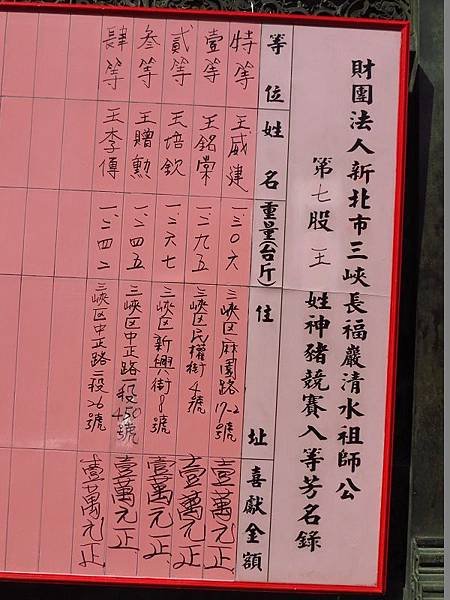 財團法人新北市三峽長福巖清水祖師公
第七股 王 姓神豬競賽入等芳名錄
等位 姓名 重量(台斤) 住址 喜獻金額
特等 王威建 一、三〇六 三峽区麻園路17-2號 壹萬元正
壹等 王銘榮 一、二九五 三峽区民權街4號 壹萬元正
貳等 王培欽 一、二六七 三峽区新興街8號 壹萬元正
叁等 王贈勳 一、二四五 三峽区中正路一段450號 壹萬元正
肆等 王李傳 一、二四二 三峽区中正路二段26號 壹萬元正